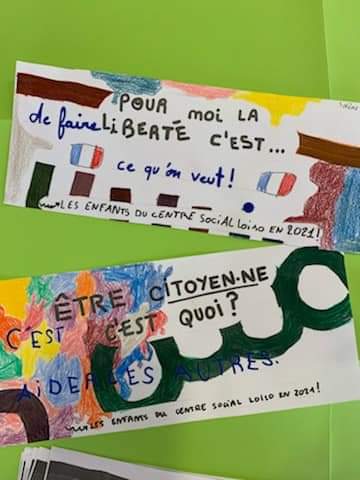 POUR MOI LA
de faire LIBERTÉ C'EST...
ce qu'on veut !
LES ENFANTS DU CENTRE SOCIAL LOISO EN 2021 !
ÊTRE CITOYEN·NE
C'EST C'EST QUOI ?
AIDER LES AUTRES.
LES ENFANTS DU CENTRE SOCIAL LOISO EN 2021 !